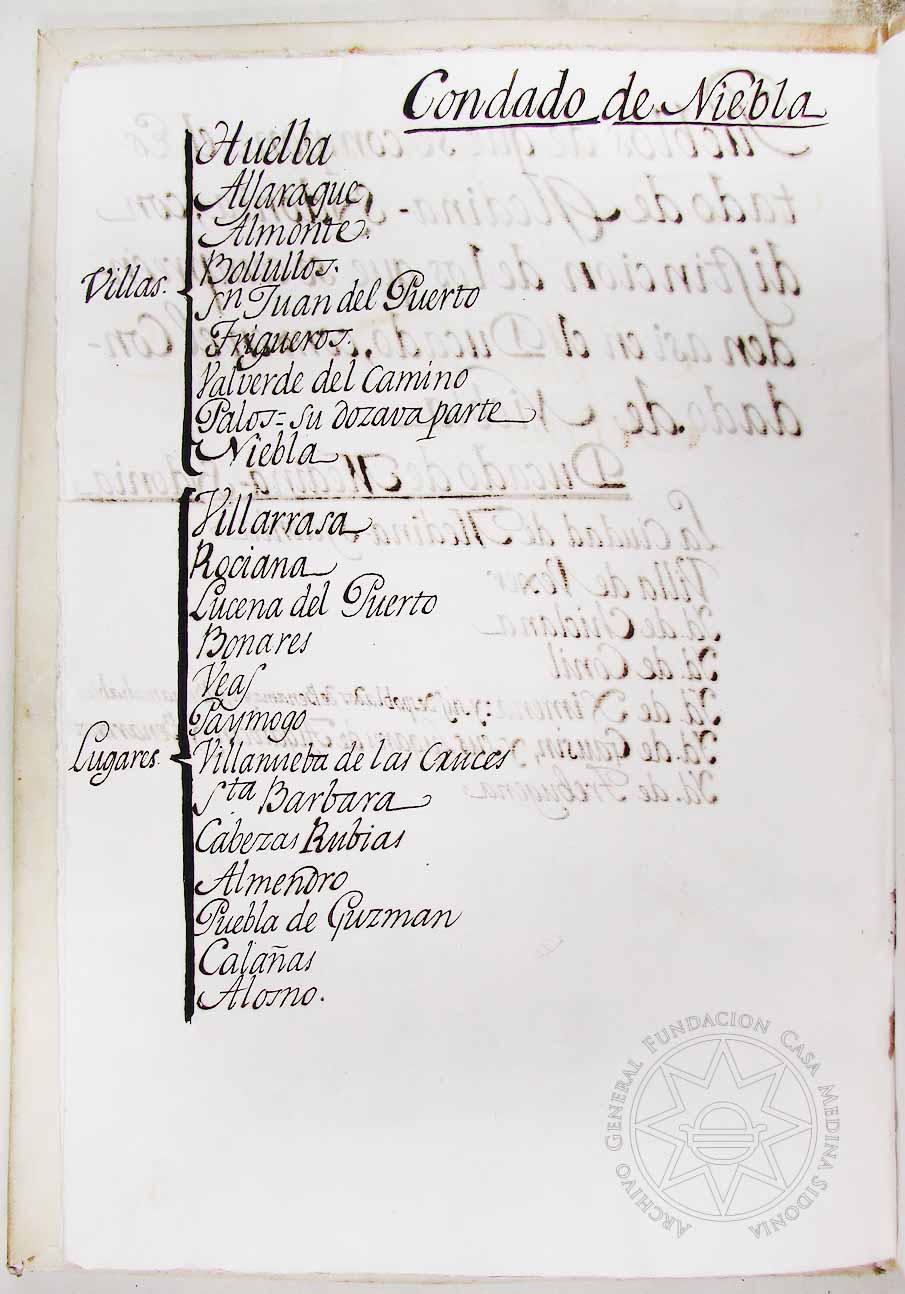 Condado de Niebla
Villas.
Huelba
Aljaraque
Almonte.
Bollullos.
Sn Juan del Puerto
Trigueros.
Valverde del Camino
Palos = su dozava parte
Niebla
Lugares.
Villarrasa
Rociana
Lucena del Puerto
Bonares
Veas
Paymogo
Villanueba de las Cruces
Sta Barbara
Cabezas Rubias
Almendro
Puebla de Guzman
Calañas
Alosno.
ARCHIVO GENERAL FUNDACION CASA MEDINA SIDONIA